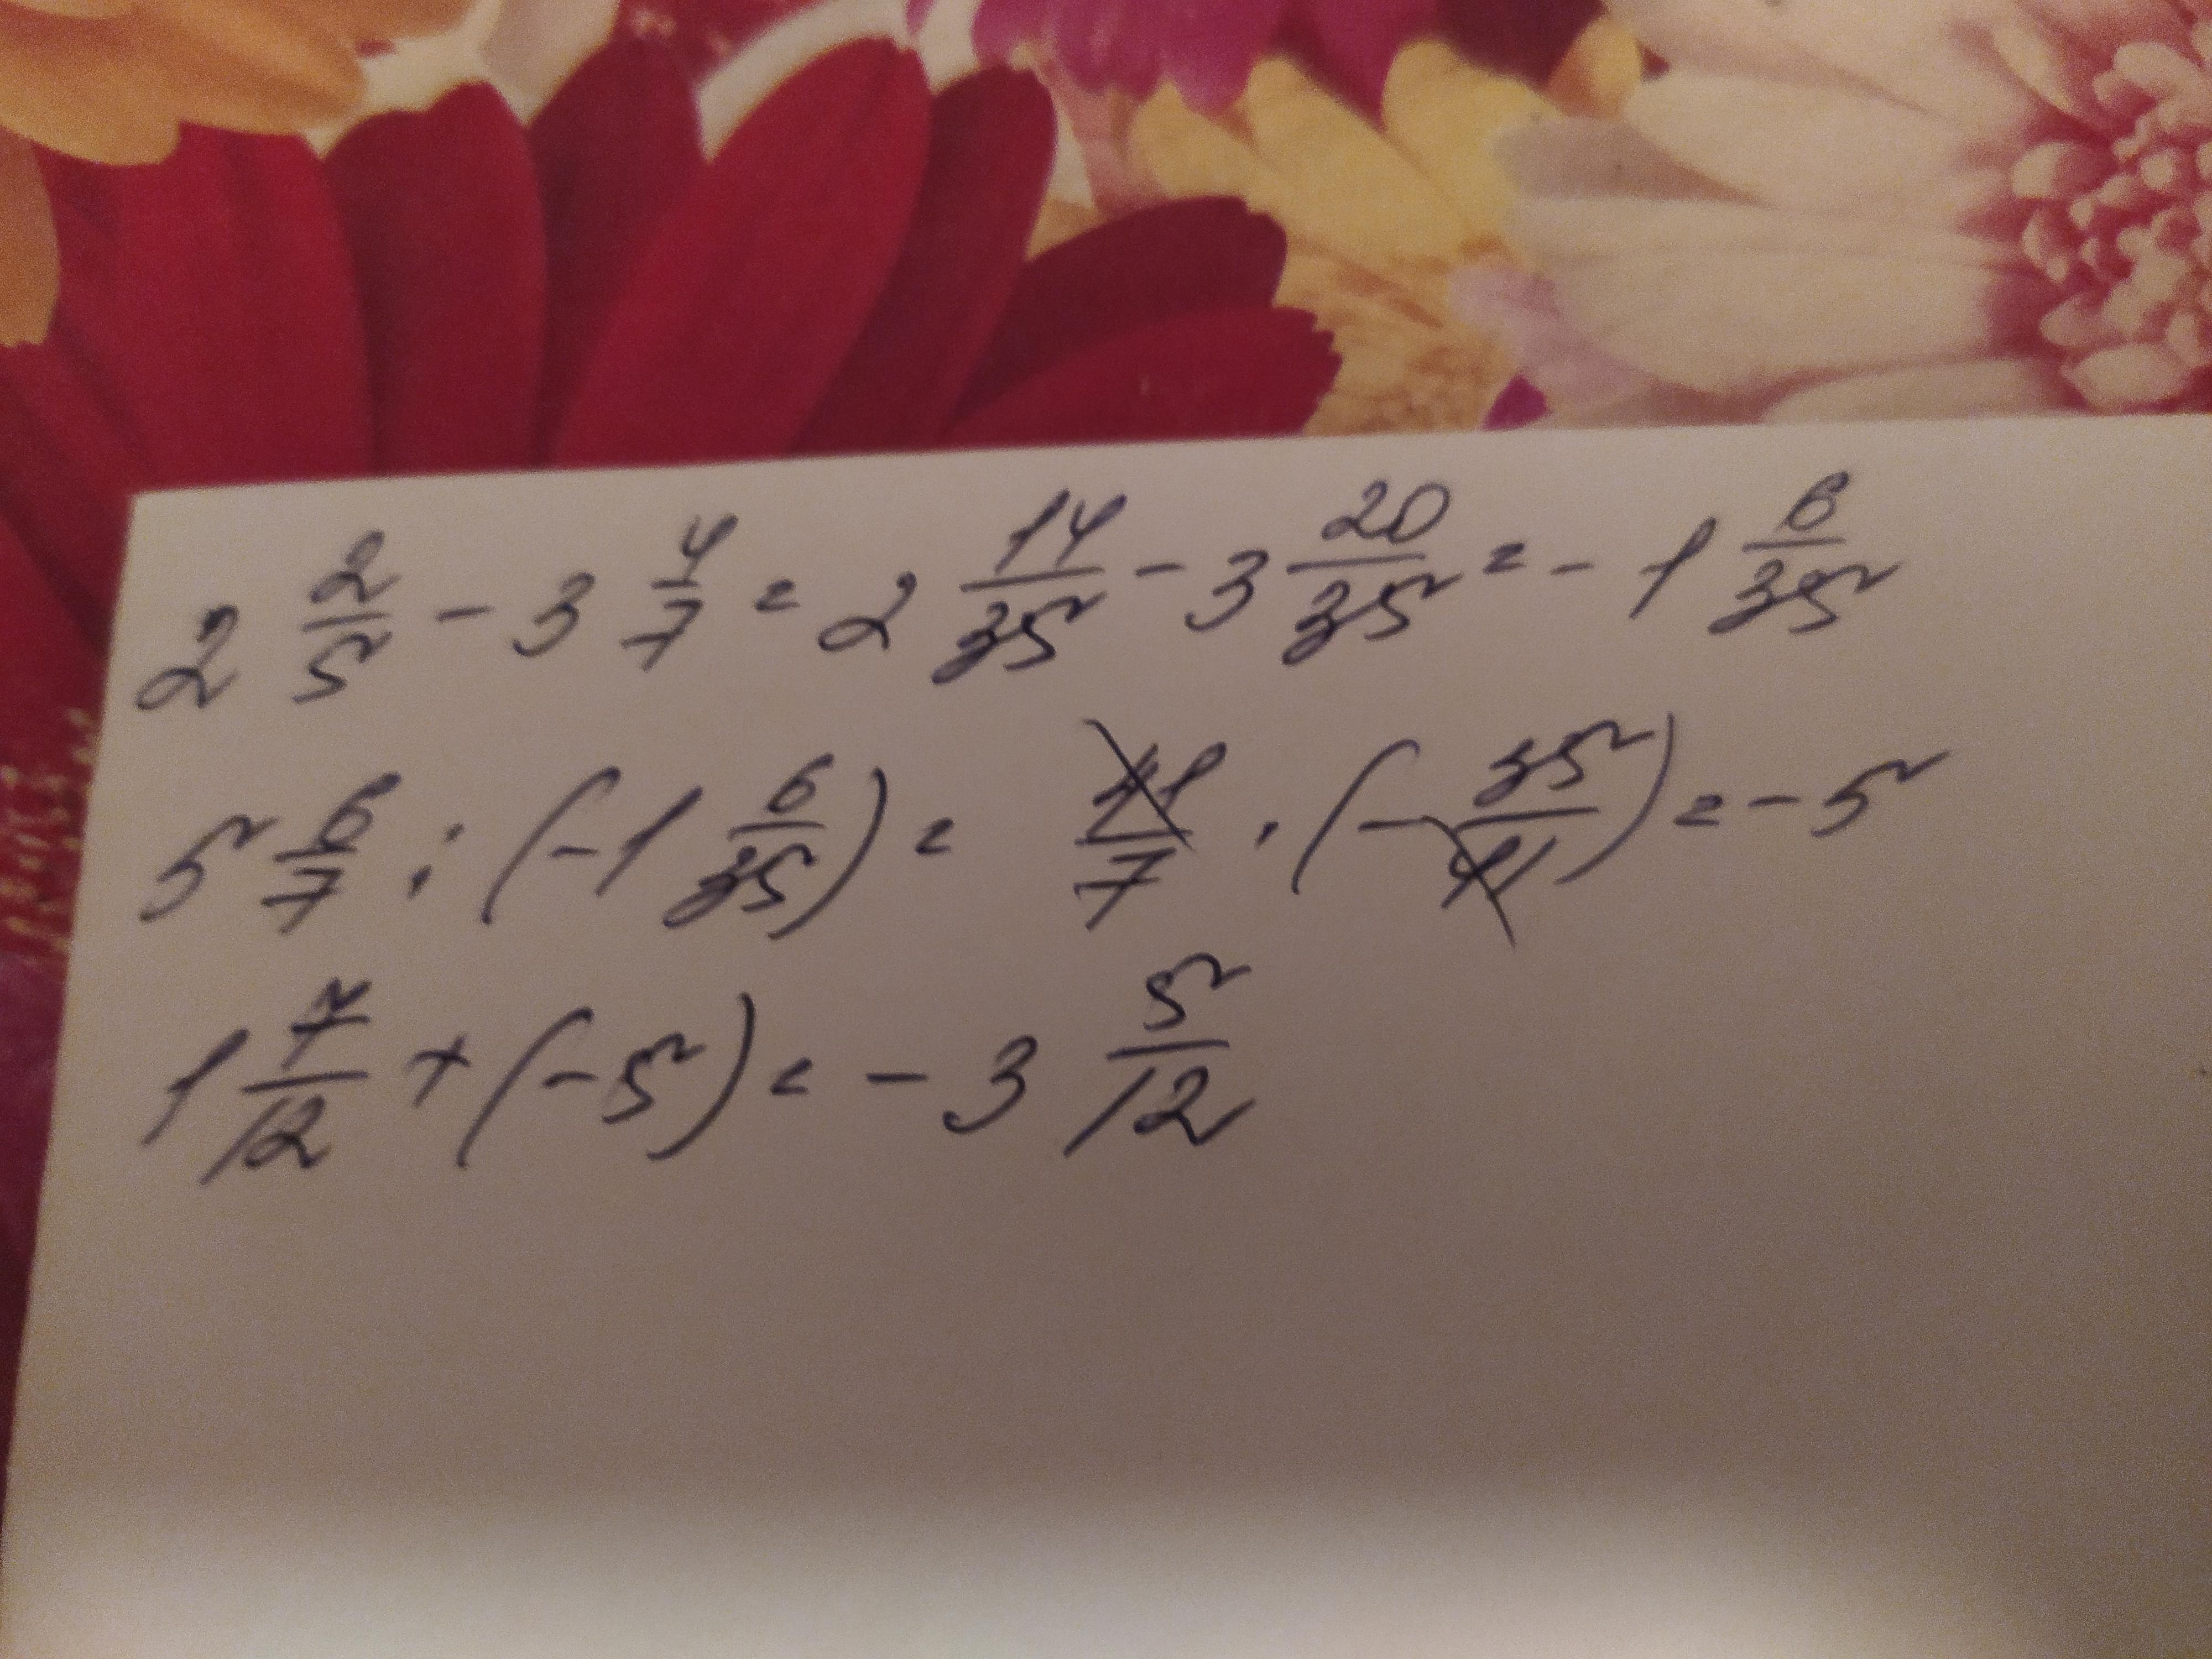 2 2/5 - 3 4/7 = 2 14/35 - 3 20/35 = - 1 6/35
5 6/7 : (-1 6/35) = 41/7 · (- 35/41) = - 5
1 7/12 + (-5) = - 3 5/12